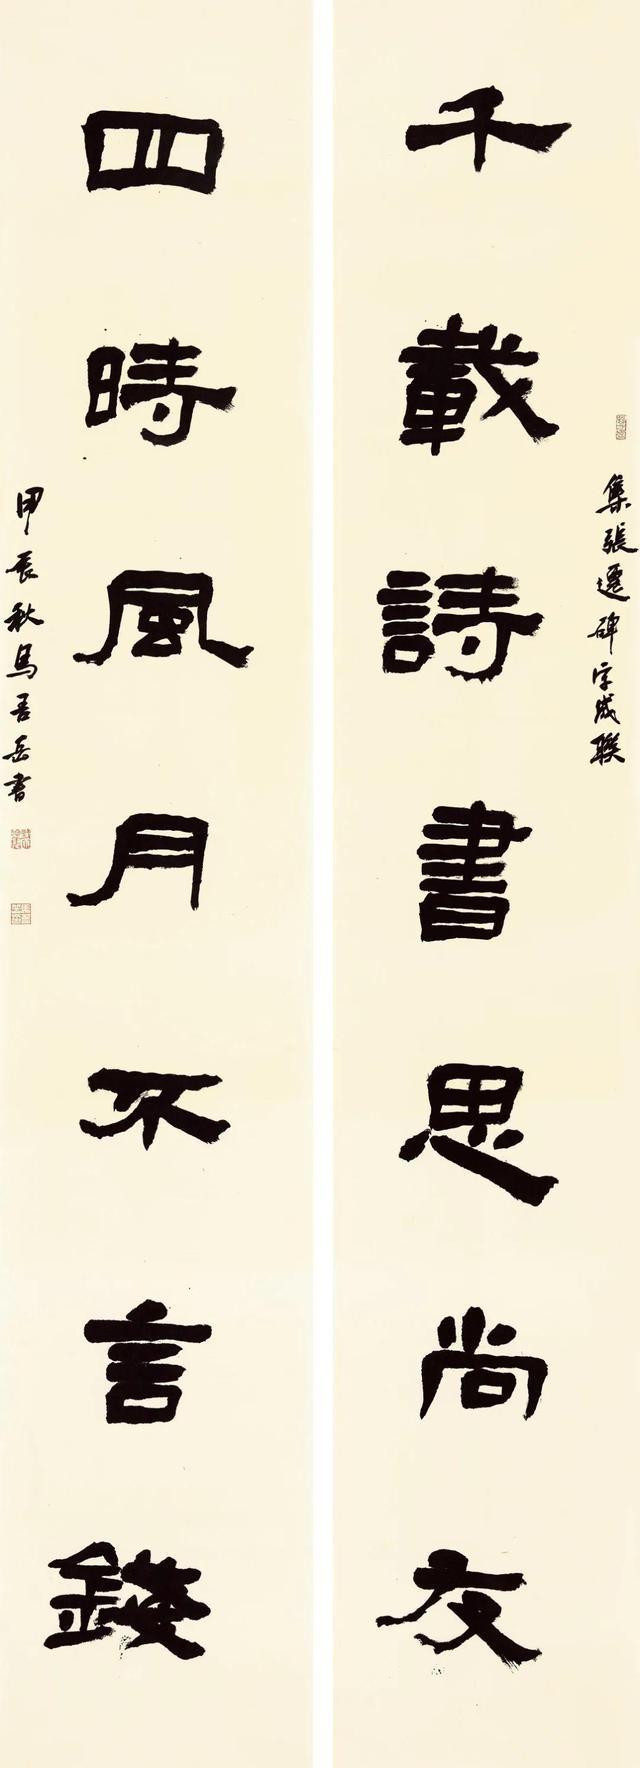 集張遷碑字成联
千載詩書思尚友
四時風月不言錢
甲辰秋馬吾岳書